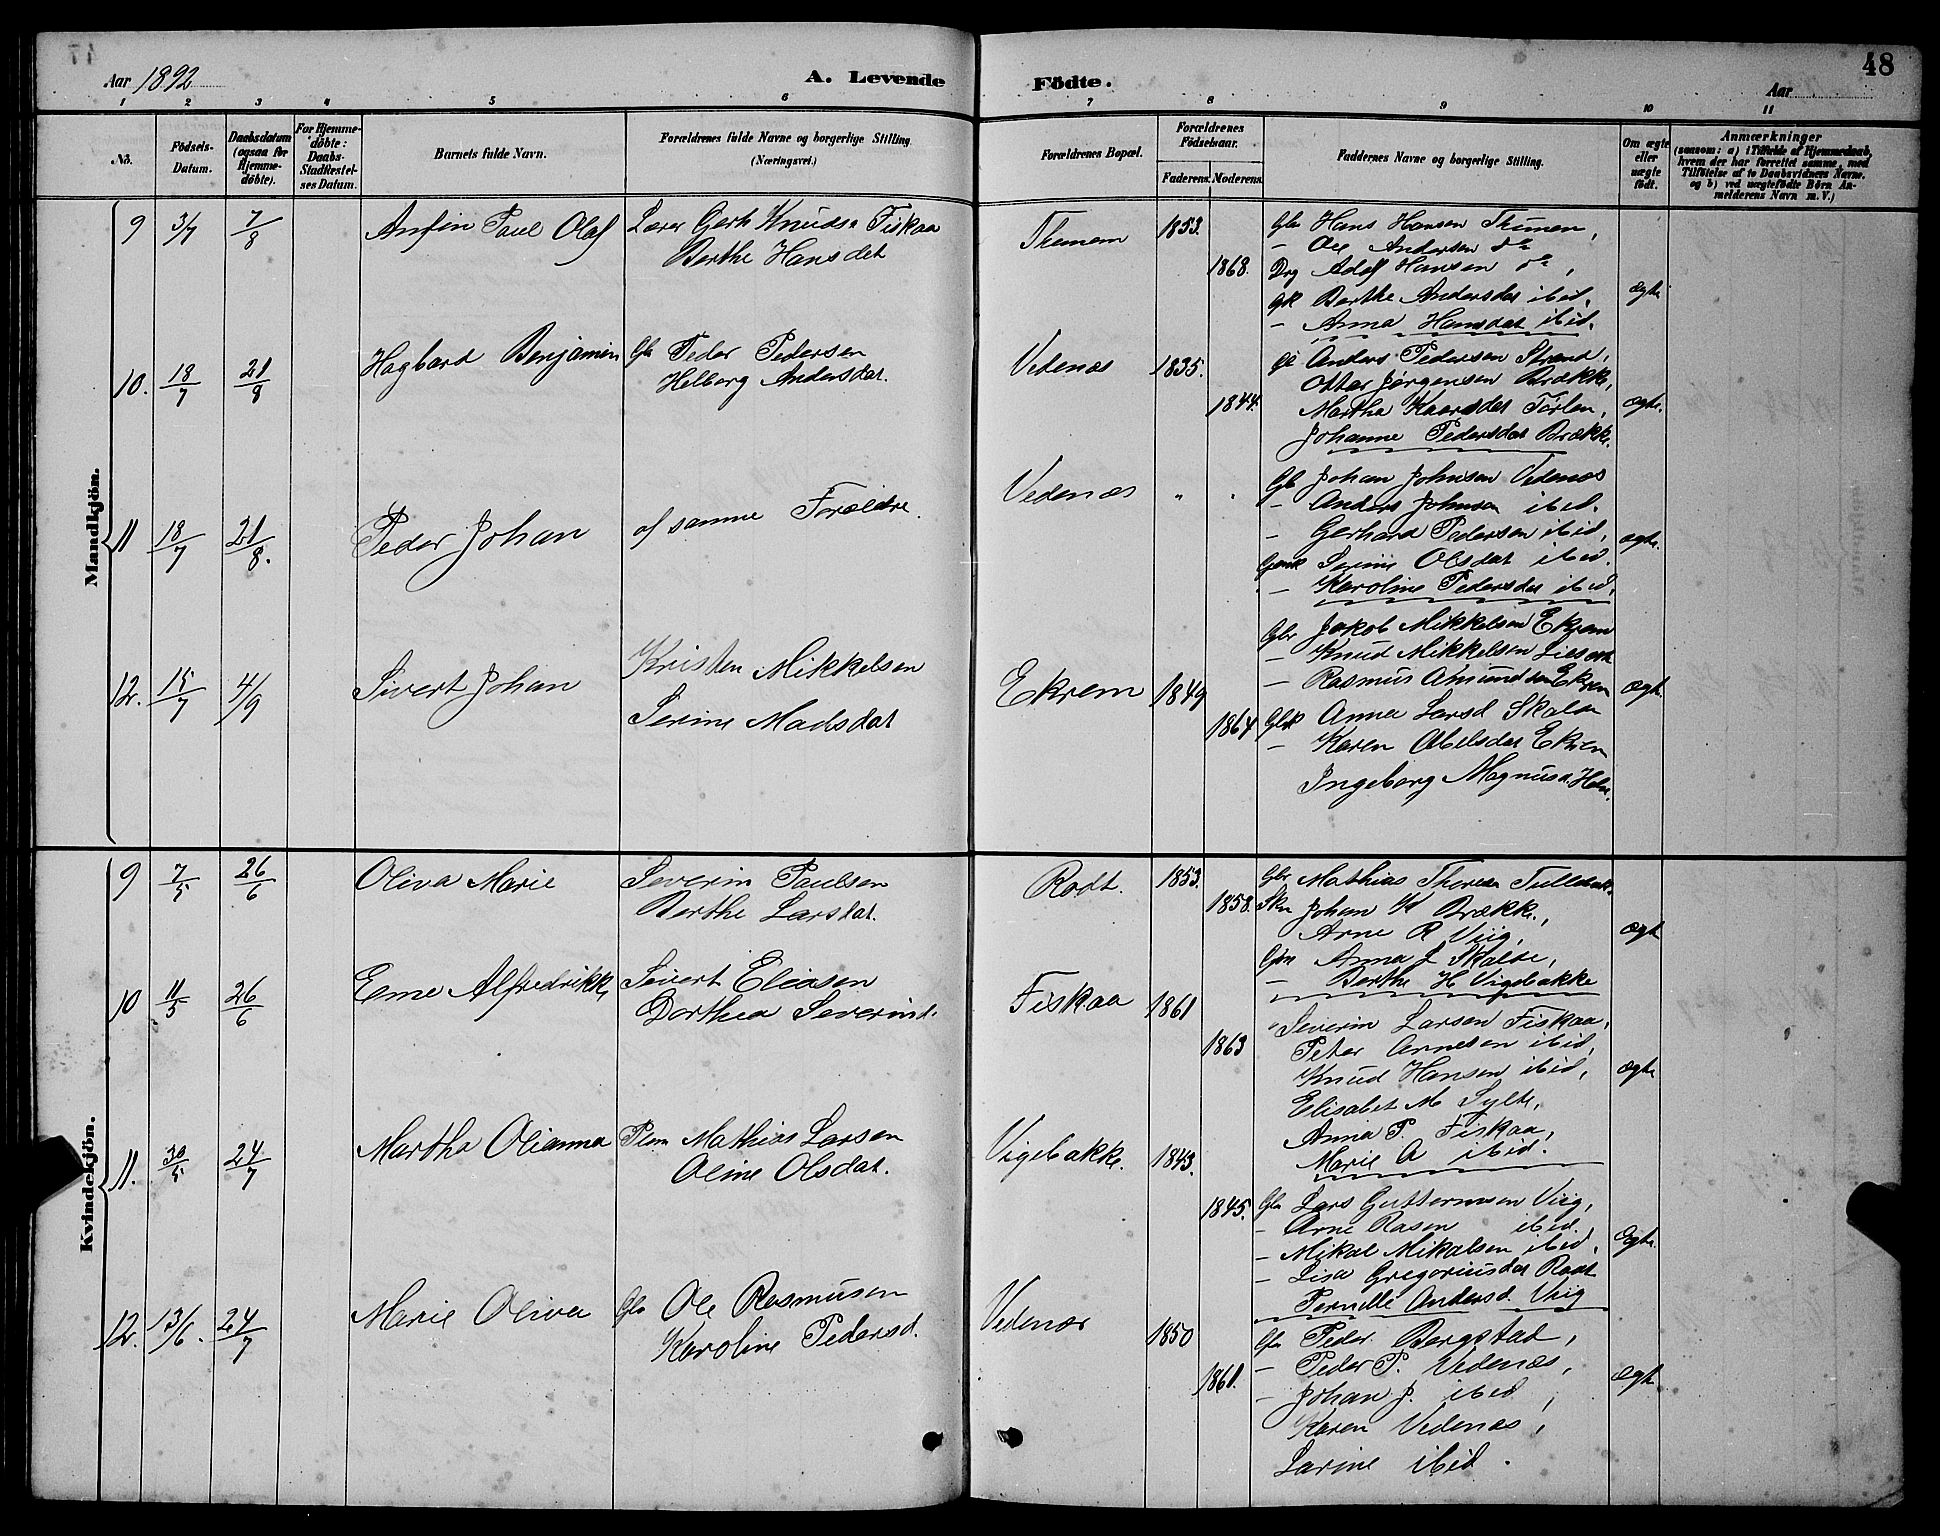 48
Aar 1892
A. Levende Födte.
Aar
1 2 3 4 5 6 7 8 9 10 11
No.
Födsels-Datum.
Daabsdatum (ogsaa for Hjemme-döbte).
For Hjemme-döbte: Daabs-Stadfæstel-ses Datum.
Barnets fulde Navn.
Forældrenes fulde Navne og borgerlige Stilling (Næringsvei.)
Forældrenes Bopæl.
Forældrenes Födselsaar.
Faderens. Moderens.
Faddernes Navne og borgerlige Stilling.
Om ægte eller uægte födt.
Anmærkninger
(saasom: a) i Tilfælde af Hjemmedaab, hvem der har forrettet samme, med Tilföielse af to Daabsvidners Navne, og b) ved uægtefödte Börn An-melderens Navn m. V.)
Mandkjön.
9 3/7 7/8 Anfin Paul Olaf
Lærer Gert Knuds. Fiskaa
Berthe Hansdat
1853. 1868.
Hans Hansen
Ole Andersen do
Adolf Hansen do,
Berthe Andersdat ibid.
Anna Hansdat ibid.
ægte
10. 18/7 21/8 Hagbard Benjamin
Gbr Peder Pedersen
Helborg Andersdat.
Vedenæs 1835. 1844.
Anders Pedersen Strand,
Otter Jørgensen Brække,
Martha Kaarsdat
Johanne Pedersdat Brække.
ægte.
11 18/7 21/8. Peder Johan
af samme Forældre.
Vedenæs " "
Gb Johan Johnsen Vedenæs
– Anders Johnsen ibid.
– Gerhard Pedersen ibid,
Serine Olsdat ibid
– Karoline Pedersdat ibid.
ægte.
12. 15/7 4/9 Sivert Johan
Kristen Mikkelsen
Serine Madsdat
Ekrem 1849 1864
Gbr Jakob Mikkelsen Ekrem
– Knud Mikkelsen
– Rasmus Amundsen Ekrem
Anna Larsd Skalle
– Karen Abelsdat Ekrem
Ingeborg Magnusd.
ægte
Kvindekjön.
9 7/5 26/6 Oliva Marie
Severin Paulsen
Berthe Larsdat.
Rødt. 1853. 1858.
Gbr Mathias Thoresen
Johan K Brække,
Arne R Viig,
Anna J
– Berthe H Vigebakke
ægte
10 11/5 26/6 Alfredrikke
Sivert Eliasen
Dorthea Severind.
Fiskaa 1861 1863
Severin Larsen Fiskaa,
Peter Arnesen ibid,
Knud Hansen ibid,
Elisabet M Sylte,
Anna P. Fiskaa,
Marie A ibid.
ægte
11. 30/5 24/7 Martha Olianna
Mathias Larsen
Oline Olsdat.
Vigebakke. 1843. 1845.
Gbr Lars Guttormsen Viig,
– Arne Rasm ibid.
– Mikal Mikalsen ibid,
– Lisa Gregoriusdat Rødt
Pernille Andersd Viig
Ægte.
12. 13/6. 24/7 Marie Oliva
Gbr Ole Rasmusen
Karoline Pedersd.
Vedenæs 1850 1861.
Gbr Peder Bergstad,
– Peder P. Vedenæs,
– Johan J. ibid,
Karen Vedenæs,
Larine ibid.
ægte